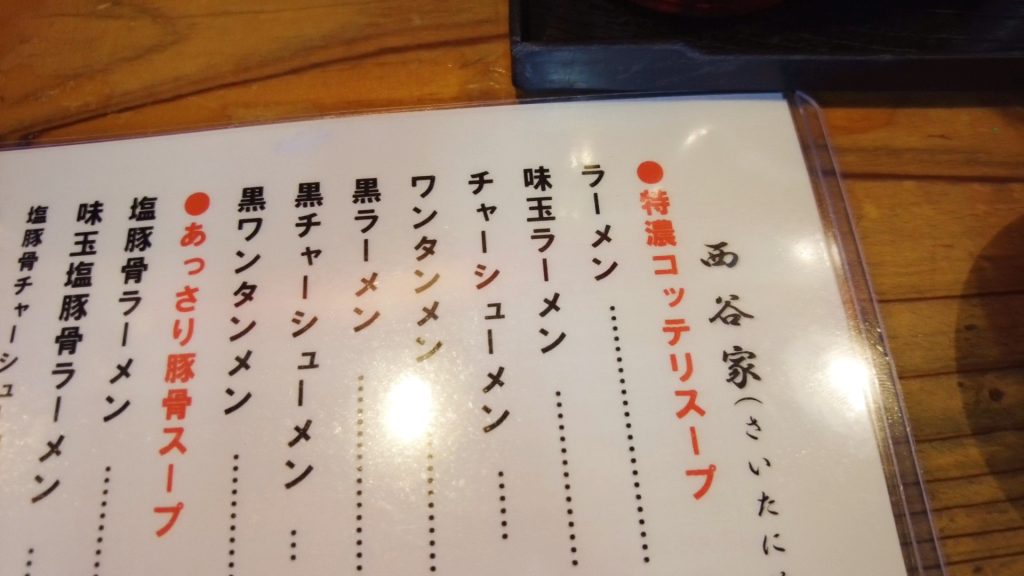 西谷家(さいたに
●特濃コッテリスープ
ラーメン
味玉ラーメン
チャーシューメン
ワンタンメン
黒ラーメン
黒チャーシューメン
黒ワンタンメン
●あっさり豚骨スープ
塩豚骨ラーメン
味玉塩豚骨ラーメン
塩豚骨チャーシュー